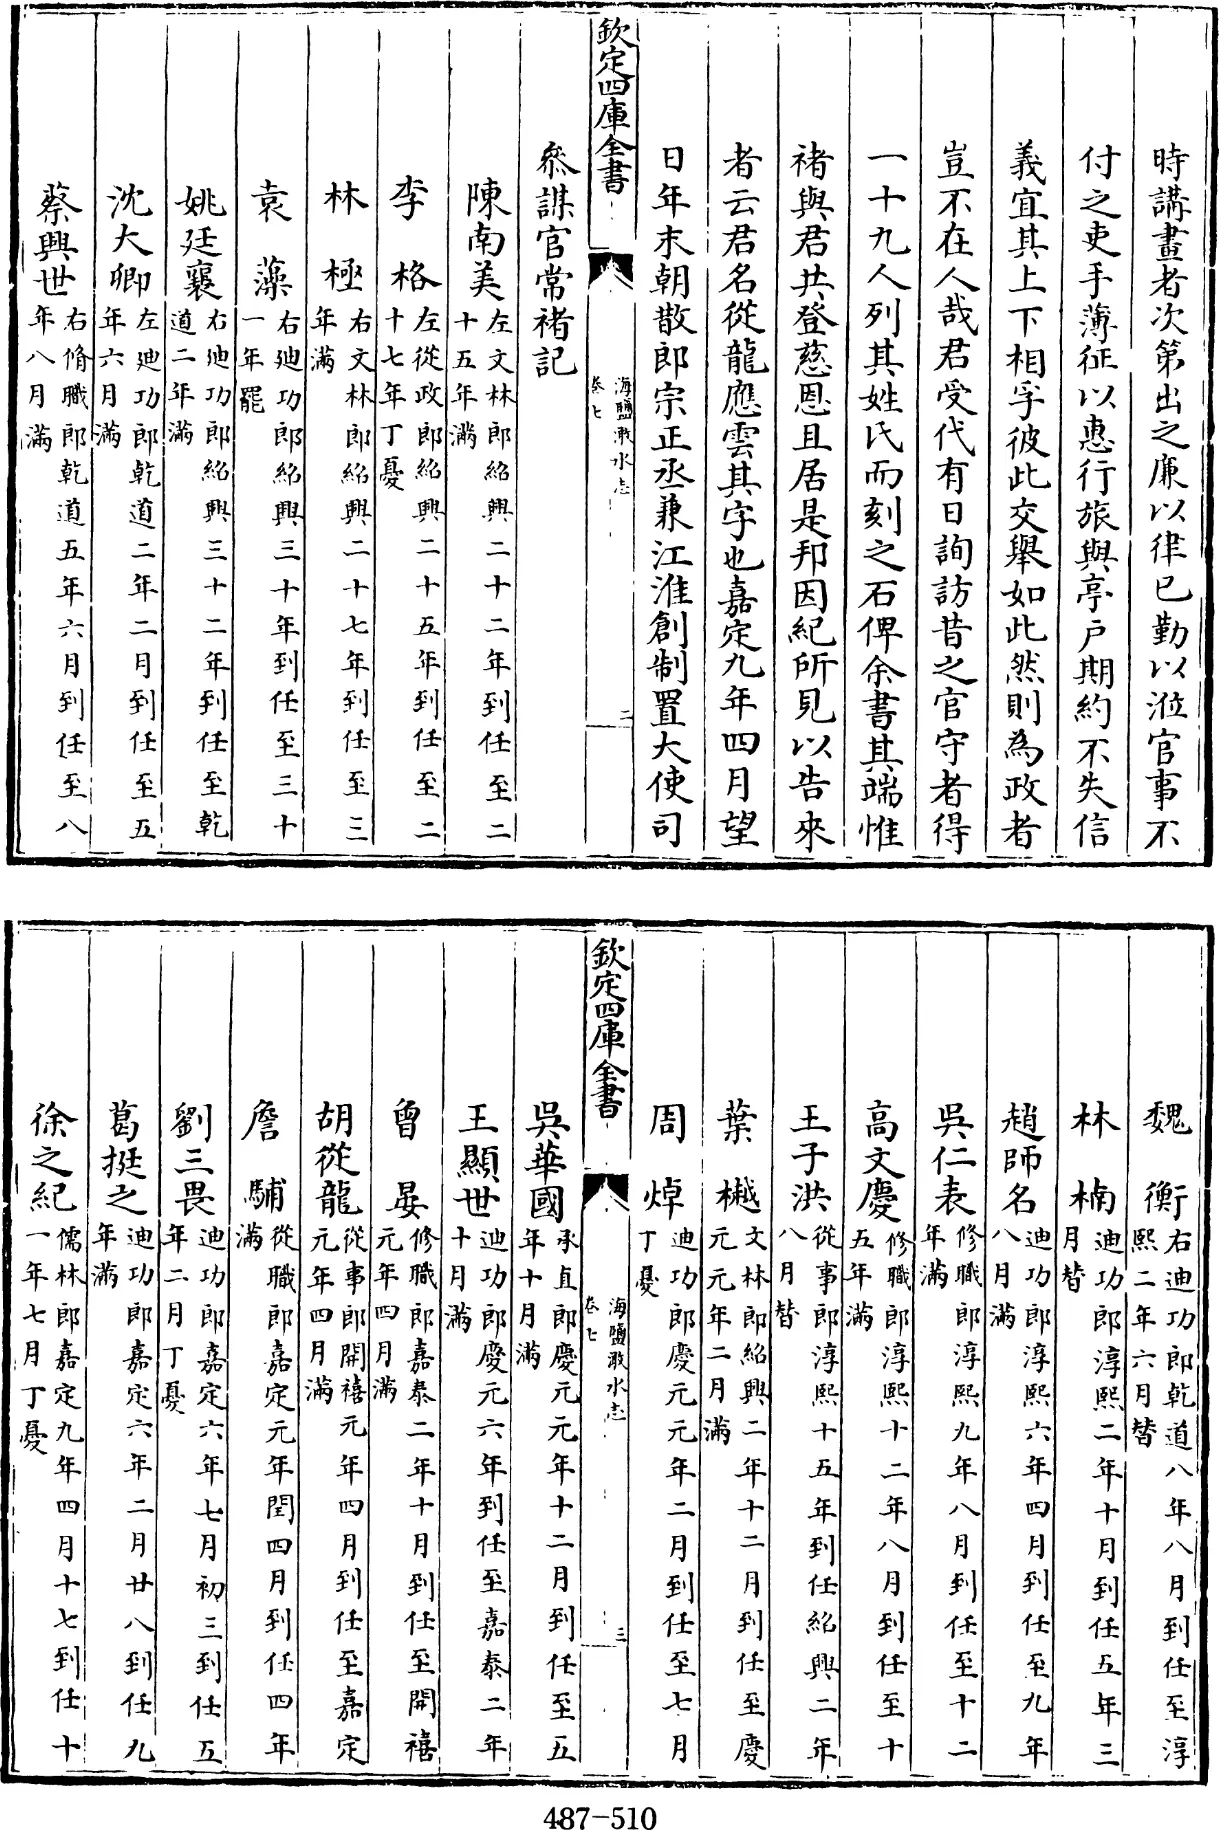 時講畫者次第出之廉以律已勤以涖官事不
付之吏手薄征以惠行旅與亭戶期約不失信
義宜其上下相孚彼此交舉如此然則為政者
豈不在人哉君受代有日詢訪昔之官守者得
一十九人列其姓氏而刻之石俾余書其端惟
褚與君共登慈恩且居是邦因紀所見以告來
者云君名從龍應雲其字也嘉定九年四月望
日年末朝散郎宗正丞兼江淮創制置大使司
欽定四庫全書
海鹽澉水志
卷七
二
叅謀官常褚記
陳南美左文林郎紹興二十二年到任至二十五年滿
李格左從政郎紹興二十五年到任至二十七年丁憂
林極右文林郎紹興二十七年到任至三年滿
袁藻右迪功郎紹興三十年到任至三十一年罷
姚廷襄右迪功郎紹興三十二年到任至乾道二年滿
沈大卿左迪功郎乾道二年二月到任至五年六月滿
蔡興世右脩職郎乾道五年六月到任至八年八月滿
魏衡右迪功郎乾道八年八月到任至淳熙二年六月替
林楠迪功郎淳熙二年十月到任五年三月替
趙師名迪功郎淳熙六年四月到任至九年八月滿
吳仁表修職郎淳熙九年八月到任至十二年滿
高文慶修職郎淳熙十二年八月到任至十五年滿
王子洪從事郎淳熙十五年到任紹興二年八月替
葉樾文林郎紹興二年十二月到任至慶元元年二月滿
周焯迪功郎慶元元年二月到任至七月丁憂
欽定四庫全書
海鹽澉水志
卷七
三
吳華國承直郎慶元元年十二月到任至五年十月滿
王顯世迪功郎慶元六年到任至嘉泰二年十月滿
曾晏修職郎嘉泰二年十月到任至開禧元年四月滿
胡從龍從事郎開禧元年四月到任至嘉定元年四月滿
詹𩣡從職郎嘉定元年閏四月到任四年滿
劉三畏迪功郎嘉定六年七月初三到任五年二月丁憂
葛挺之迪功郎嘉定六年二月廿八到任九年滿
徐之紀儒林郎嘉定九年四月十七到任十一年七月丁憂
487-510